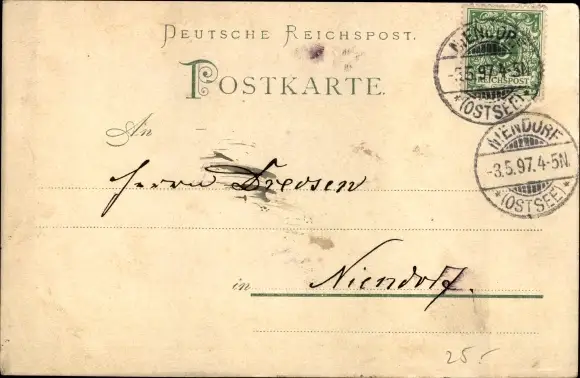 DEUTSCHE REICHSPOST.
POSTKARTE.
NIENDORF
-3.5.97.4-5N.
*(OSTSEE)*
REICHSPOST
NIENDORF
-3.5.97.4-5N.
*(OSTSEE)*
An
Herrn Drevsen
in Niendorf.
25.-